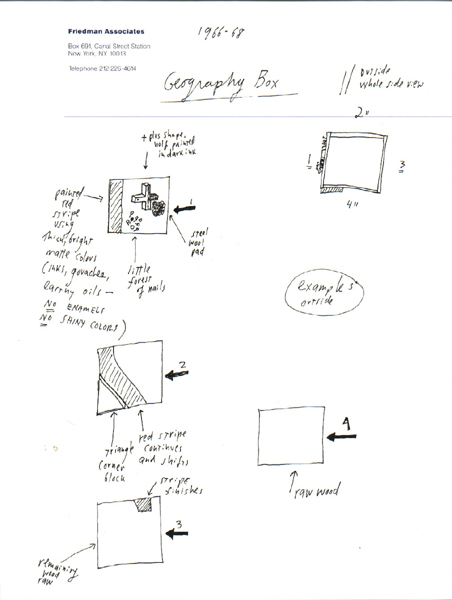 Friedman Associates
Box 691, Canal Street Station
New York, NY 10013
Telephone 212 226-4614
1966-68
Geography Box
// outside
whole side view
2"
1
3
4"
+ plus shape,
half painted
in dark ink
1
painted
red
stripe
using
thick, bright
matte colors
(inks, gouaches,
earthy oils —
NO ENAMELS
NO SHINY COLORS)
little
forest
of nails
steel
wool
pad
Examples
outside
2
triangle
corner
block
red stripe
continues
and shifts
4
raw wood
stripe
finishes
3
remaining
wood
raw